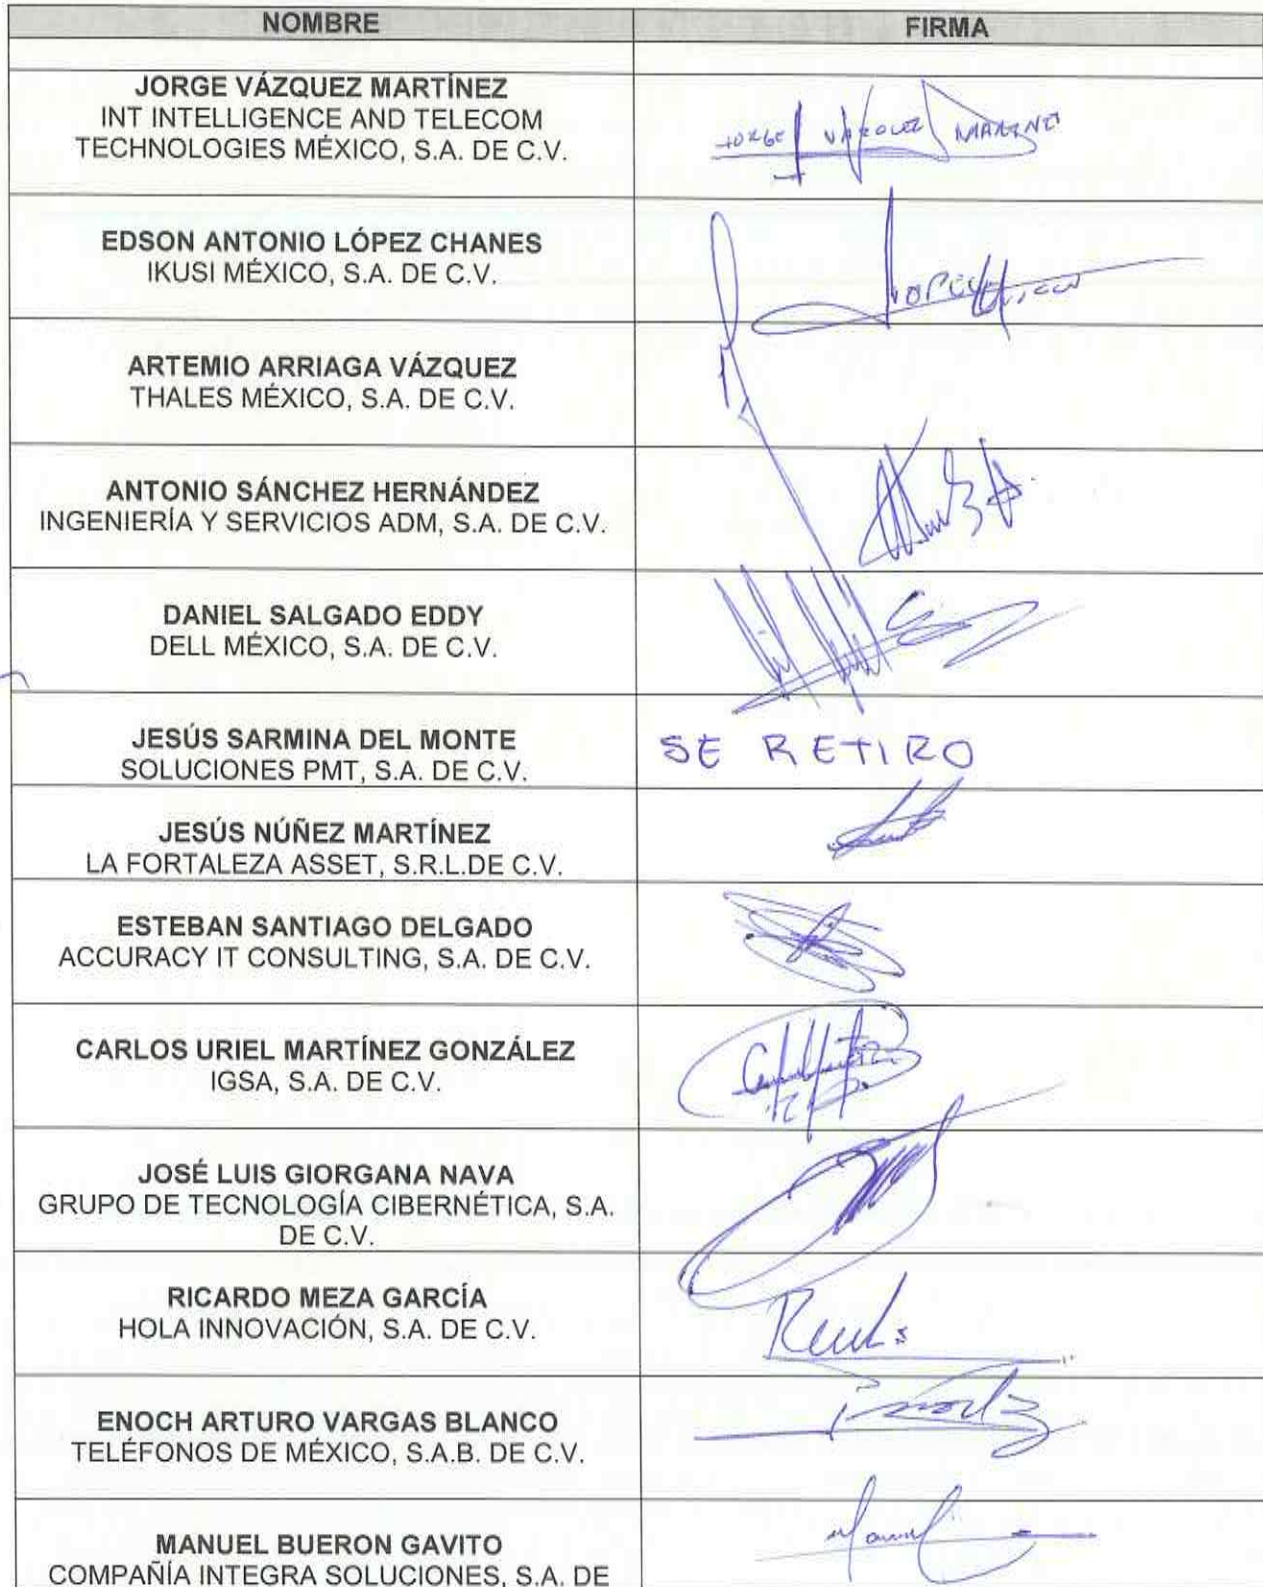 NOMBRE
FIRMA
JORGE VÁZQUEZ MARTÍNEZ
INT INTELLIGENCE AND TELECOM
TECHNOLOGIES MÉXICO, S.A. DE C.V.
JORGE VAZQUEZ MARTINEZ
EDSON ANTONIO LÓPEZ CHANES
IKUSI MÉXICO, S.A. DE C.V.
ARTEMIO ARRIAGA VÁZQUEZ
THALES MÉXICO, S.A. DE C.V.
ANTONIO SÁNCHEZ HERNÁNDEZ
INGENIERÍA Y SERVICIOS ADM, S.A. DE C.V.
DANIEL SALGADO EDDY
DELL MÉXICO, S.A. DE C.V.
JESÚS SARMINA DEL MONTE
SOLUCIONES PMT, S.A. DE C.V.
SE RETIRO
JESÚS NÚÑEZ MARTÍNEZ
LA FORTALEZA ASSET, S.R.L.DE C.V.
ESTEBAN SANTIAGO DELGADO
ACCURACY IT CONSULTING, S.A. DE C.V.
CARLOS URIEL MARTÍNEZ GONZÁLEZ
IGSA, S.A. DE C.V.
JOSÉ LUIS GIORGANA NAVA
GRUPO DE TECNOLOGÍA CIBERNÉTICA, S.A.
DE C.V.
RICARDO MEZA GARCÍA
HOLA INNOVACIÓN, S.A. DE C.V.
ENOCH ARTURO VARGAS BLANCO
TELÉFONOS DE MÉXICO, S.A.B. DE C.V.
MANUEL BUERON GAVITO
COMPAÑÍA INTEGRA SOLUCIONES, S.A. DE